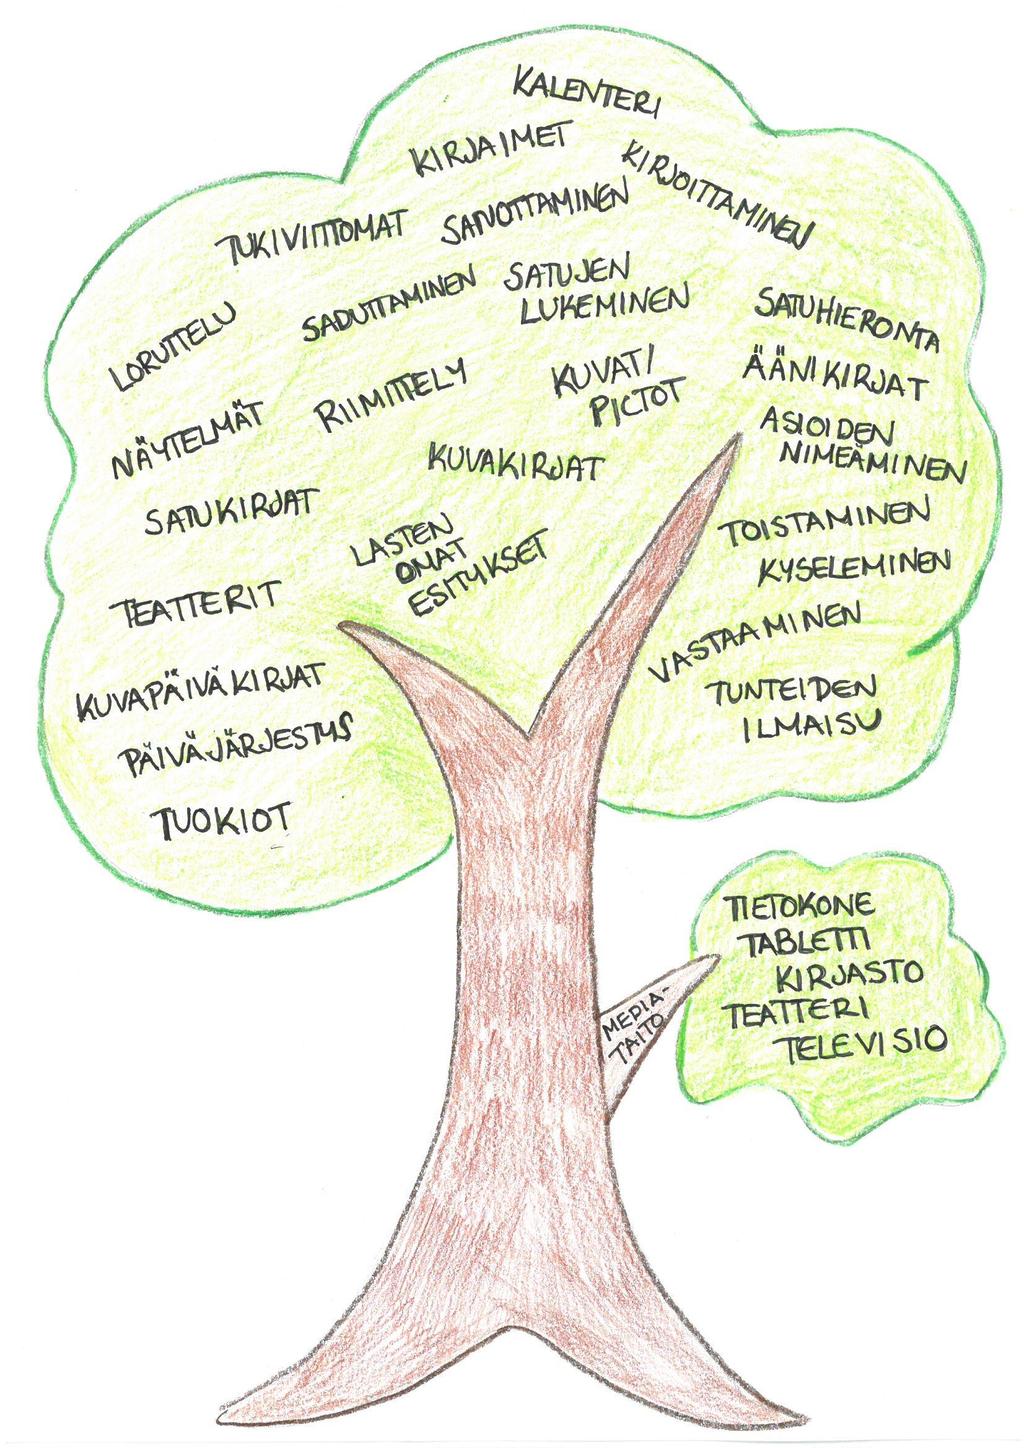 KALENTERI
KIRJAIMET
KIRJOITTAMINEN
TUKIVIITTOMAT
SANOTTAMINEN
LORUTTELU
SADUTTAMINEN
SATUJEN
LUKEMINEN
SATUHIERONTA
NÄYTELMÄT
RIIMITTELY
KUVAT/
PICTOT
ÄÄNIKIRJAT
ASIOIDEN
NIMEÄMINEN
KUVAKIRJAT
SATUKIRJAT
LASTEN
OMAT
ESITYKSET
TOISTAMINEN
KYSELEMINEN
TEATTERIT
VASTAAMINEN
KUVAPÄIVÄKIRJAT
TUNTEIDEN
ILMAISU
PÄIVÄJÄRJESTYS
TUOKIOT
TIETOKONE
TABLETTI
KIRJASTO
TEATTERI
TELEVISIO
MEDIA-
TAITO